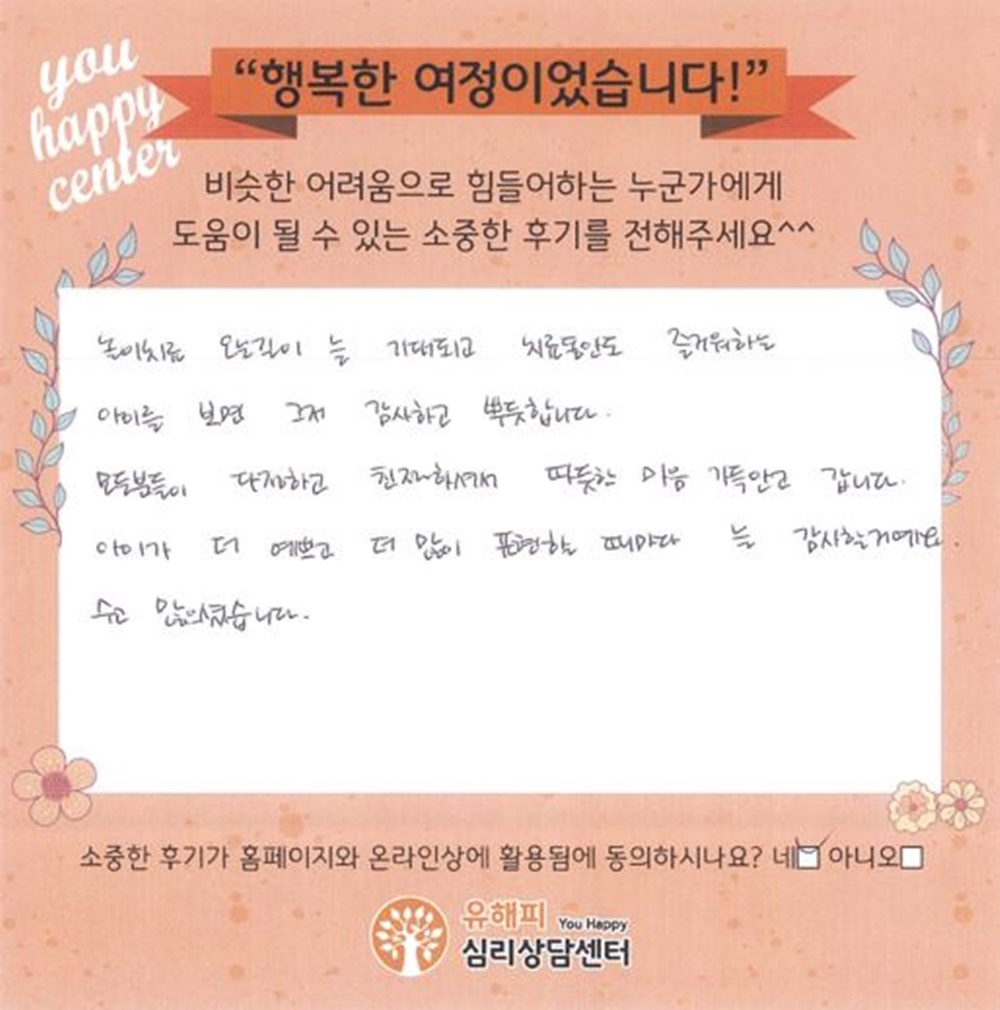 you
happy
center
“행복한 여정이었습니다!”
비슷한 어려움으로 힘들어하는 누군가에게
도움이 될 수 있는 소중한 후기를 전해주세요^^
놀이치료 오는길이 늘 기대되고 치료동안도 즐거워하는
아이를 보면 그저 감사하고 뿌듯합니다.
모든분들이 다정하고 친절하셔서 따뜻한 마음 가득안고 갑니다.
아이가 더 예쁘고 더 많이 표현할 때마다 늘 감사할거예요.
수고 많으셨습니다.
소중한 후기가 홈페이지와 온라인상에 활용됨에 동의하시나요? 네 아니오
유해피 You Happy
심리상담센터